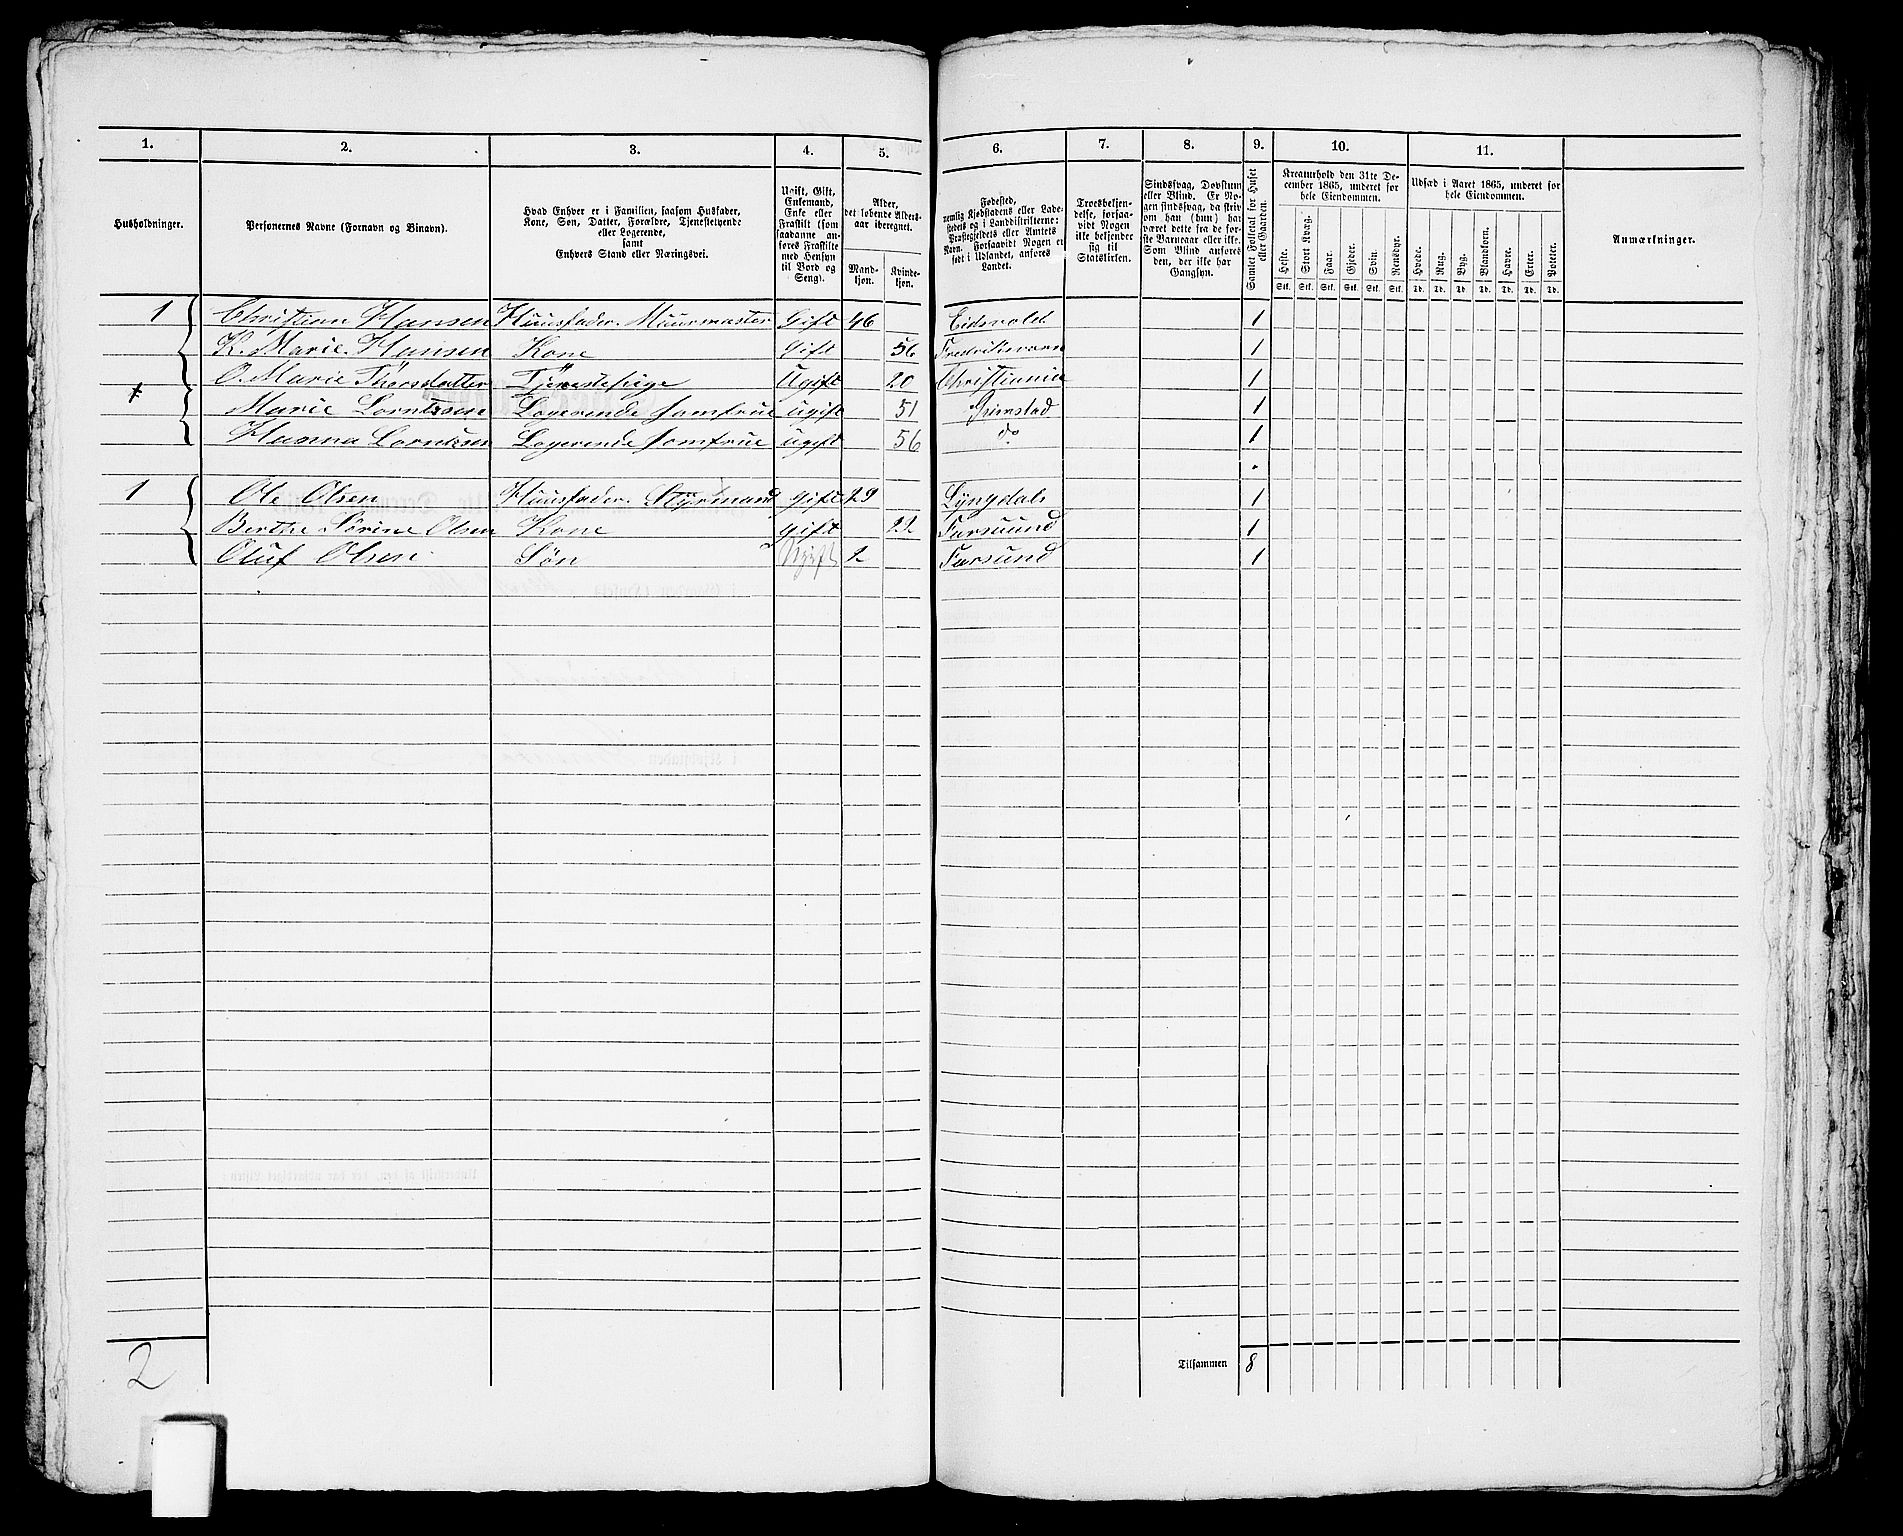 1. 2. 3. 4. 5. 6. 7. 8. 9. 10. 11.
Husholdninger.
Personernes Navne (Fornavn og Binavn).
Hvad Enhver er i Familien, saasom Husfader,
Kone, Søn, Datter, Forældre, Tjenestetyende
eller Logerende,
samt
Enhvers Stand eller Næringsvei.
Ugift, Gift,
Enkemand,
Enke eller
Fraskilt (som
saadanne an-
føres Fraskilte
med Hensyn
til Bord og
Seng).
Alder,
det løbende Alders-
aar iberegnet.
Mand-
kjøn.
Kvinde-
kjøn.
Fødested,
nemlig Kjøbstadens eller Lade-
stedets og i Landdistrikterne:
Præstegjeldets eller Amtets
Navn. Forsaavidt Nogen er
født i Udlandet, anføres
Landet.
Troesbekjen-
delse, forsaa-
vidt Nogen
ikke bekjender
sig til
Statskirken.
Sindssvag, Døvstum
eller Blind. Er No-
gen sindssvag, da skriv
om han (hun) har
været dette fra de før-
ste Barneaar eller ikke.
Som Blind anføres
den, der ikke har
Gangsyn.
Samlet Folketal for Huset
eller Gaarden.
Kreaturhold den 31te De-
cember 1865, underet for
hele Eiendommen.
Heste. Stort Kvæg. Faar. Gjeder. Svin. Rensdyr.
Stk. Stk. Stk. Stk. Stk. Stk.
Udsæd i Aaret 1865, underet for
hele Eiendommen.
Hvede. Rug. Byg. Blandkorn. Havre. Erter. Poteter.
Td. Td. Td. Td. Td. Td. Td.
Anmærkninger.
1 Christian Hansen Huusfader. Muurmester Gift 46 Eidsvold 1
K. Marie. Hansen Kone Gift 56 Fredriksværn 1
O. Marie Thorsdatter Tjenestepige Ugift 20 Christiania 1
Marie Lorntzsen Logerende Jomfrue ugift 51 Grimstad 1
Hanna Lorntzsen Logerende Jomfrue ugift 56 do 1
1 Ole Olsen Huusfader. Styrmand gift 29 Lyngdal 1
Berthe Sørine Olsen Kone gift 22 Farsuund 1
Oluf Olsen Søn Ugift 2 Farsund 1
2
Tilsammen 8